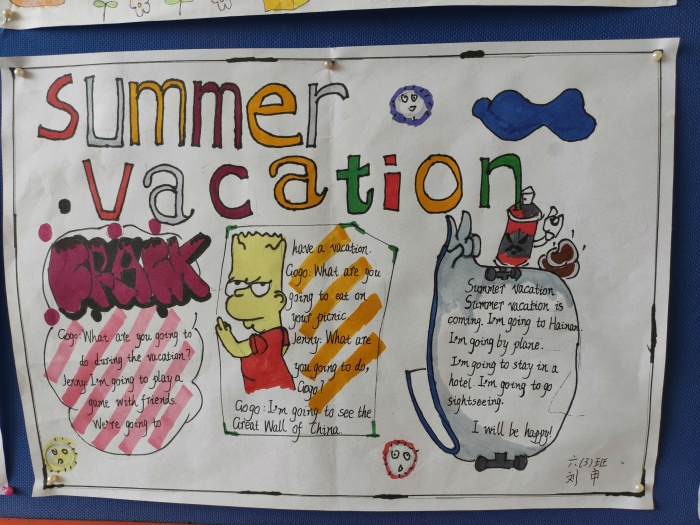 summer
vacation
Gogo: What are you going to
do during the vacation?
Jenny: I'm going to play a
game with friends.
We're going to
have a vacation.
Gogo: What are you
going to eat on
your picnic
Jenny: What are
you going to do,
Gogo?
Gogo: I'm going to see the
Great Wall of China.
Summer vacation
Summer vacation is
coming. I'm going to Hainan.
I'm going by plane.
I'm going to stay in a
hotel. I'm going to go
sightseeing.
I will be happy!
六(3)班
刘申